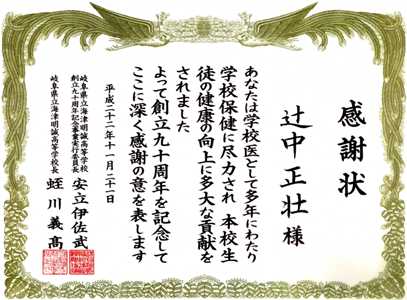 感謝状
辻中正壮様
あなたは学校医として多年にわたり
学校保健に尽力され 本校生
徒の健康の向上に多大な貢献を
されました
よって創立九十周年を記念して
ここに深く感謝の意を表します
平成二十二年十一月二十一日
岐阜県立海津明誠高等学校
創立九十周年記念事業実行委員長
安立伊佐武
岐阜県立海津明誠高等学校長
蛭川義髙